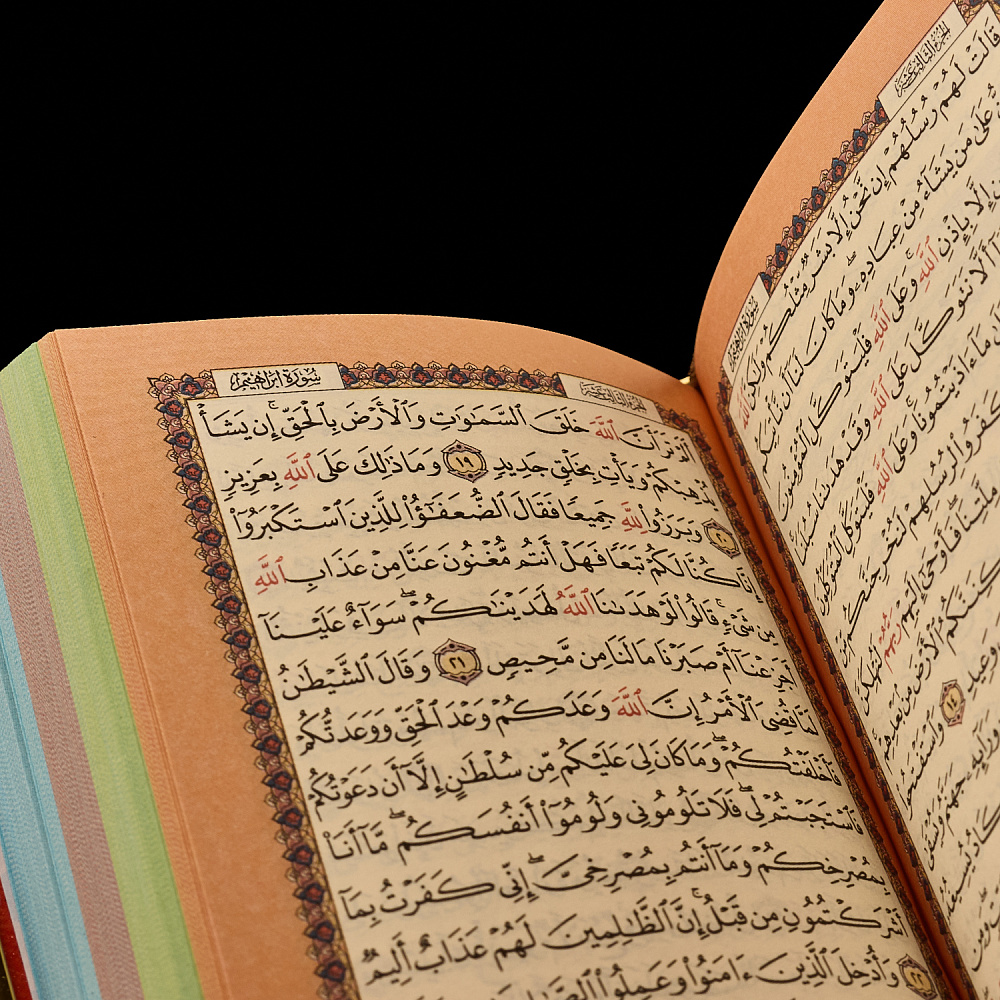 الجزء الثالث عشر
سورة ابراهيم
قَالَتْ لَهُمْ رُسُلُهُمْ إِن نَّحْنُ إِلَّا بَشَرٌ مِّثْلُكُمْ وَلَٰكِنَّ ٱللَّهَ
عَلَىٰ مَن يَشَآءُ مِنْ عِبَادِهِۦ ۖ وَمَا كَانَ لَنَآ أَن نَّأْتِيَكُم
إِلَّا بِإِذْنِ ٱللَّهِ ۚ وَعَلَى ٱللَّهِ فَلْيَتَوَكَّلِ ٱلْمُؤْمِنُونَ
أَلَّا نَتَوَكَّلَ عَلَى ٱللَّهِ وَقَدْ هَدَىٰنَا سُبُلَنَا
عَلَىٰ مَآ ءَاذَيْتُمُونَا ۚ وَعَلَى ٱللَّهِ فَلْيَتَوَكَّلِ ٱلْمُتَوَكِّلُونَ
كَفَرُوا۟ لِرُسُلِهِمْ لَنُخْرِجَنَّكُم مِّنْ
مِلَّتِنَا ۖ فَأَوْحَىٰٓ إِلَيْهِمْ رَبُّهُمْ لَنُهْلِكَنَّ
ٱلْأَرْضَ مِنۢ بَعْدِهِمْ ۚ
وَعِيدِ ١٤ وَٱسْتَفْتَحُوا۟
وَرَآئِهِۦ جَهَنَّمُ وَيُسْقَىٰ
الجزء الثالث عشر
سورة ابراهيم
أَلَمْ تَرَ أَنَّ ٱللَّهَ خَلَقَ ٱلسَّمَٰوَٰتِ وَٱلْأَرْضَ بِٱلْحَقِّ ۚ إِن يَشَأْ
يُذْهِبْكُمْ وَيَأْتِ بِخَلْقٍ جَدِيدٍ ١٩ وَمَا ذَٰلِكَ عَلَى ٱللَّهِ بِعَزِيزٍ
٢٠ وَبَرَزُوا۟ لِلَّهِ جَمِيعًا فَقَالَ ٱلضُّعَفَٰٓؤُا۟ لِلَّذِينَ ٱسْتَكْبَرُوٓا۟
إِنَّا كُنَّا لَكُمْ تَبَعًا فَهَلْ أَنتُم مُّغْنُونَ عَنَّا مِنْ عَذَابِ ٱللَّهِ
مِن شَىْءٍ ۚ قَالُوا۟ لَوْ هَدَىٰنَا ٱللَّهُ لَهَدَيْنَٰكُمْ ۖ سَوَآءٌ عَلَيْنَآ
أَجَزِعْنَآ أَمْ صَبَرْنَا مَا لَنَا مِن مَّحِيصٍ ٢١ وَقَالَ ٱلشَّيْطَٰنُ
لَمَّا قُضِىَ ٱلْأَمْرُ إِنَّ ٱللَّهَ وَعَدَكُمْ وَعْدَ ٱلْحَقِّ وَوَعَدتُّكُمْ
فَأَخْلَفْتُكُمْ ۖ وَمَا كَانَ لِىَ عَلَيْكُم مِّن سُلْطَٰنٍ إِلَّآ أَن دَعَوْتُكُمْ
فَٱسْتَجَبْتُمْ لِى ۖ فَلَا تَلُومُونِى وَلُومُوٓا۟ أَنفُسَكُم ۖ مَّآ أَنَا۠
بِمُصْرِخِكُمْ وَمَآ أَنتُم بِمُصْرِخِىَّ ۖ إِنِّى كَفَرْتُ بِمَآ
أَشْرَكْتُمُونِ مِن قَبْلُ ۗ إِنَّ ٱلظَّٰلِمِينَ لَهُمْ عَذَابٌ أَلِيمٌ
٢٢ وَأُدْخِلَ ٱلَّذِينَ ءَامَنُوا۟ وَعَمِلُوا۟